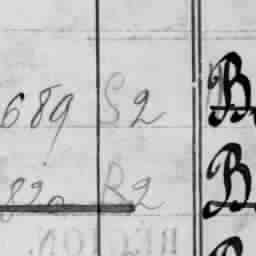 689 S2 B
820 B2 B